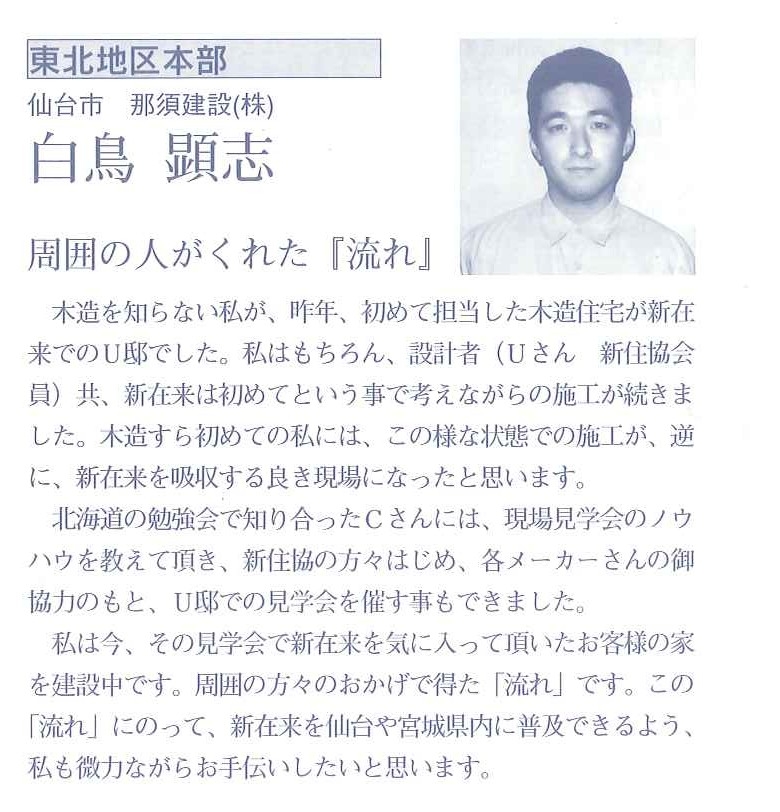 東北地区本部
仙台市　那須建設(株)
白鳥 顕志
周囲の人がくれた『流れ』
　木造を知らない私が、昨年、初めて担当した木造住宅が新在
来でのU邸でした。私はもちろん、設計者（Uさん　新住協会
員）共、新在来は初めてという事で考えながらの施工が続きま
した。木造すら初めての私には、この様な状態での施工が、逆
に、新在来を吸収する良き現場になったと思います。
　北海道の勉強会で知り合ったCさんには、現場見学会のノウ
ハウを教えて頂き、新住協の方々はじめ、各メーカーさんの御
協力のもと、U邸での見学会を催す事もできました。
　私は今、その見学会で新在来を気に入って頂いたお客様の家
を建設中です。周囲の方々のおかげで得た「流れ」です。この
「流れ」にのって、新在来を仙台や宮城県内に普及できるよう、
私も微力ながらお手伝いしたいと思います。